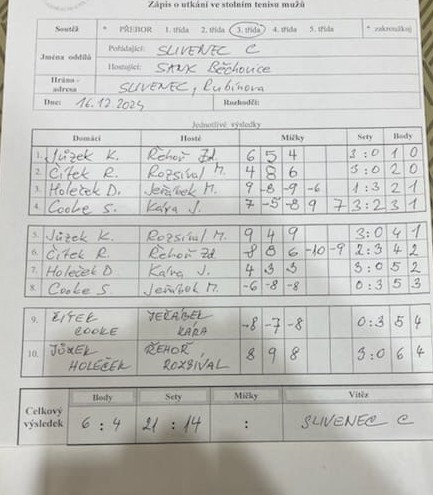 Zápis o utkání ve stolním tenisu mužů
Soutěž * PŘEBOR 1. třída 2. třída 3. třída 4. třída 5. třída * zakroužkuj
Jména oddílů Pořádající: SLIVENEC C
Hostující: SANK Běchovice
Hráno - adresa SLIVENEC, Rubínova
Dne: 16.12.2024 Rozhodčí:
Jednotlivé výsledky
Domácí Hosté Míčky Sety Body
1. Jůzek K. Řehoř Zd. 6 5 4 3:0 1 0
2. Čítek R. Rozsíval M. 4 8 6 3:0 2 0
3. Holeček D. Jeřábek M. 9 -8 -9 -6 1:3 2 1
4. Cooke S. Kára J. 7 -5 -8 9 7 3:2 3 1
5. Jůzek K. Rozsíval M. 9 4 9 3:0 4 1
6. Čítek R. Řehoř Zd. -8 8 6 -10 -9 2:3 4 2
7. Holeček D Kára J. 4 3 3 3:0 5 2
8. Cooke S Jeřábek M. -6 -8 -8 0:3 5 3
9. ČÍTEK JEŘÁBEK -8 -7 -8 0:3 5 4
COOKE KÁRA
10. JŮZEK ŘEHOŘ, 8 9 8 3:0 6 4
HOLEČEK ROZSÍVAL
Body Sety Míčky Vítěz
Celkový výsledek 6 : 4 21 : 14 : SLIVENEC C